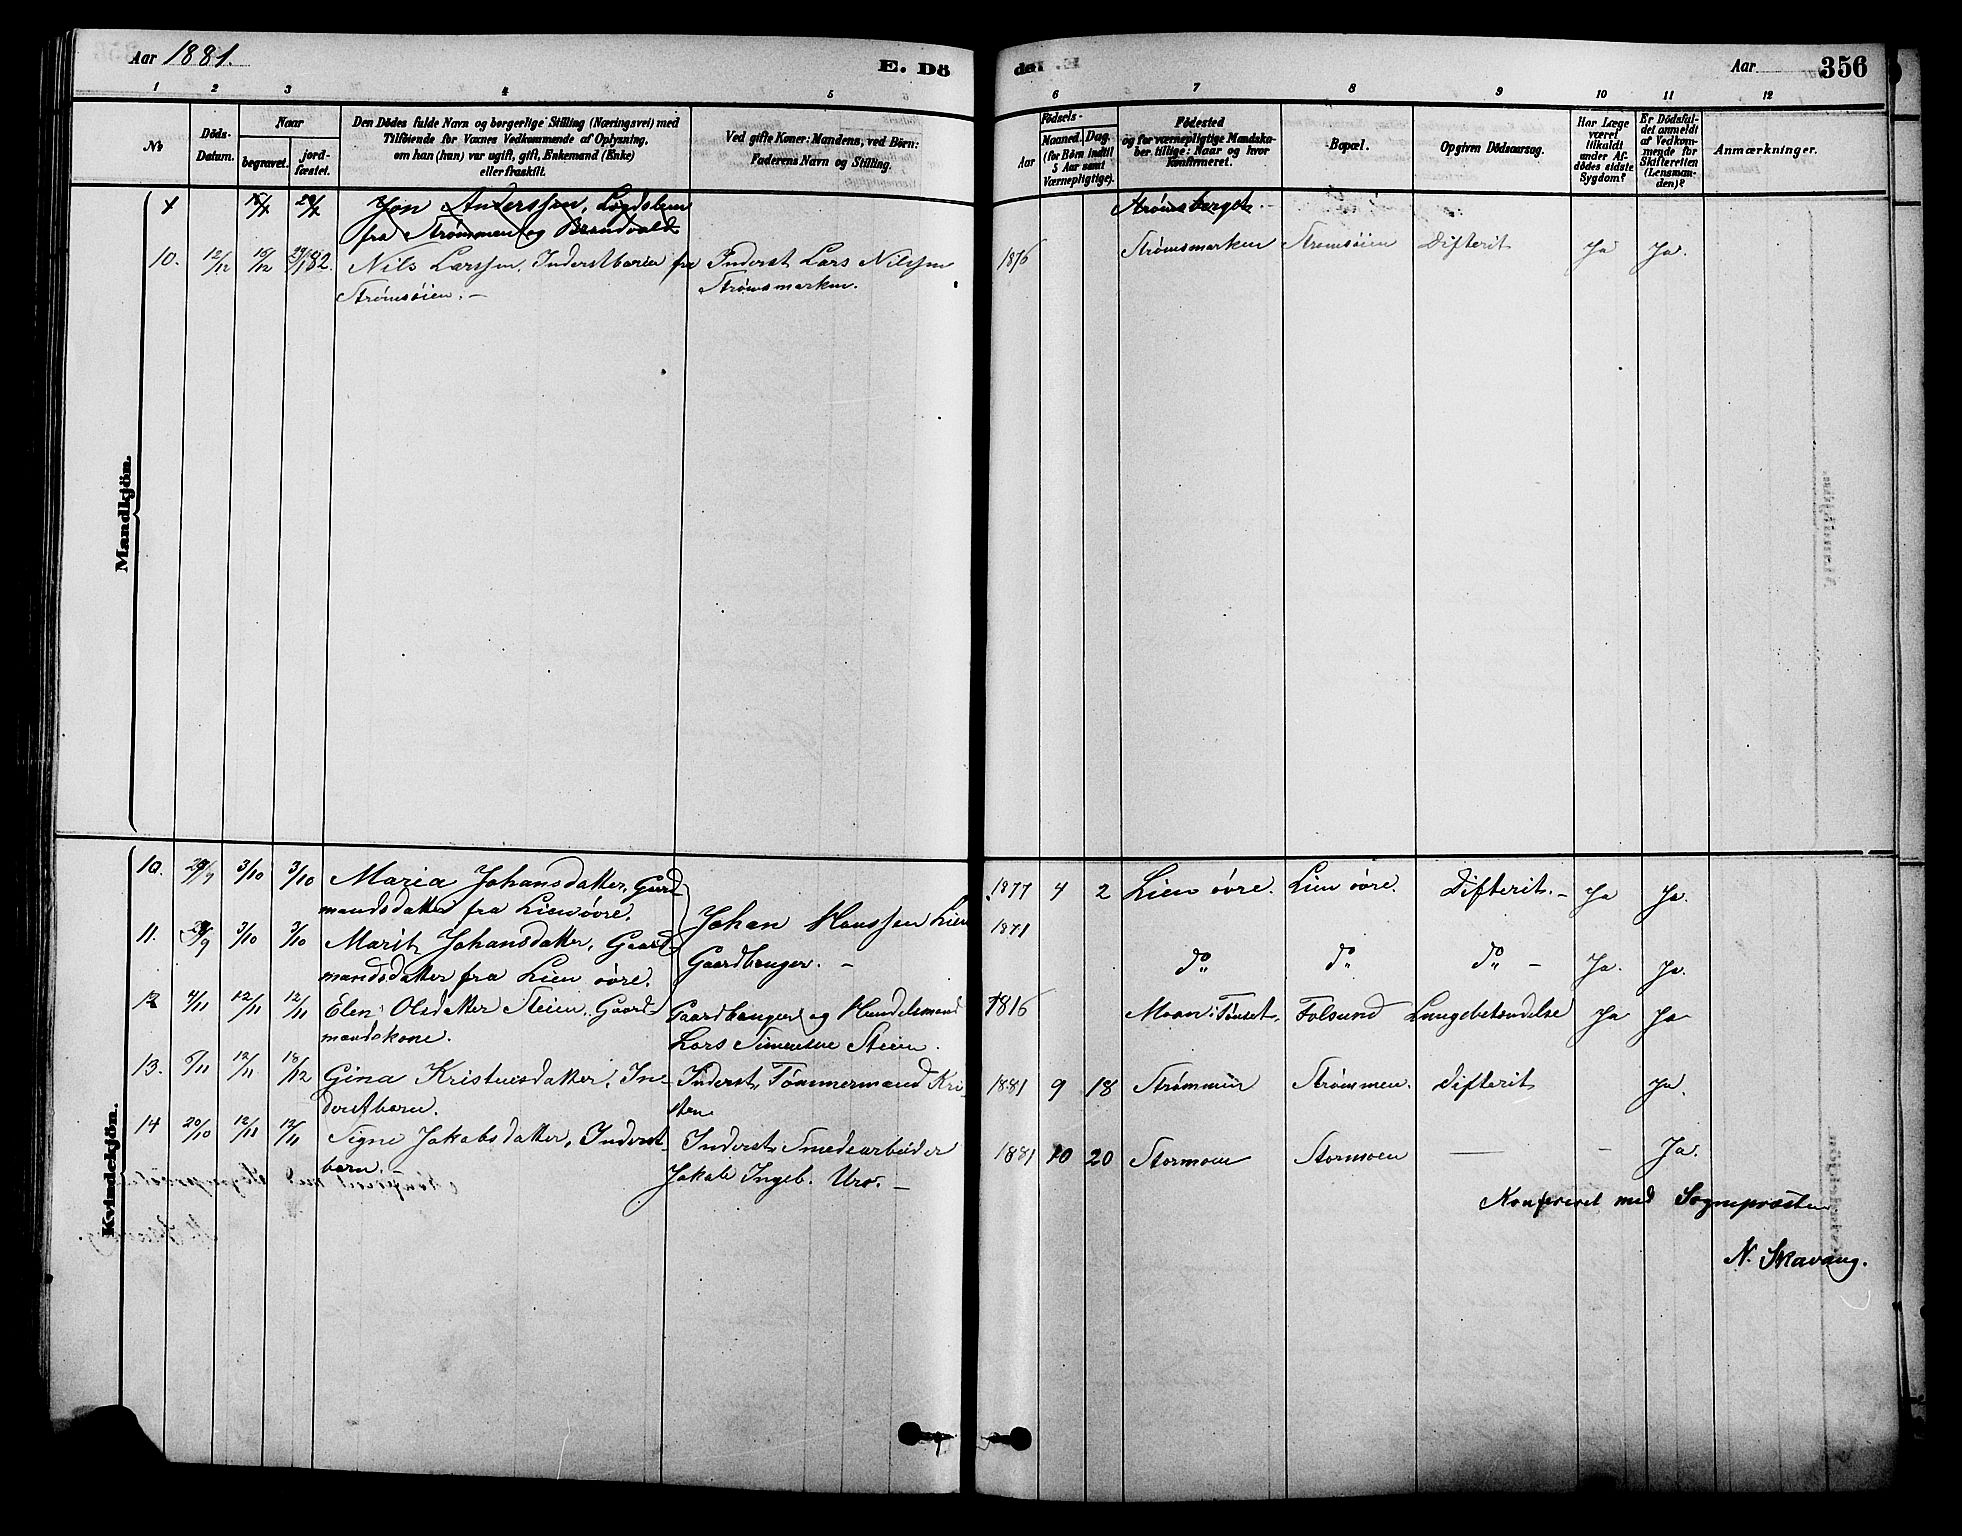 Aar 1881. E. Dö
1 2 3 4 5
№ Döds-Datum. Naar begravet. jordfæstet. Den Dödes fulde Navn og borgerlige Stilling (Næringsvei) med Tilföiende for Voxnes Vedkommende af Oplysning, om han (hun) var ugift, gift, Enkemand (Enke) eller fraskilt. Ved gifte Koner: Mandens, ved Börn: Faderens Navn og Stilling.
Mandkjön.
Jon Anderssen, Lægdslem
fra Strømmen og Brandvold
10. 12/12 16/12 29/1 82. Nils Larssen, Inderstbarn fra Inderst Lars Nilssen
Strømsøien. — Strømsmarken.
Kvindekjön.
10. 29/9 3/10 3/10 Maria Johansdatter, Gaard
mandsdatter fra Lien øvre.
Johan Hanssen Lien
11. 29/9 3/10 3/10 Marit Johansdatter, Gaard
Gaardbruger. —
mandsdatter fra Lien øvre.
12 4/11 12/11 12/11 Elen Olsdatter Steien, Gaard- Gaardbruger og Handelsmand
mandskone. Lars Simensen Steien.
13. 5/11 12/11 18/12 Gina Kristensdatter, In- Inderst, Tømmermand Kri-
derstbarn. sten
14 20/10 12/11 12/11 Signe Jakobsdatter, Inderst- Inderst, Smedearbeider
barn. — Jakob Ingeb. Uro. —
dei Aar 356
6 7 8 9 10 11 12
Födsels- Aar Maaned. Dag. (for Börn indtil 5 Aar samt Værnepligtige). Födested og for værnepligtige Mandskaber tillige: Naar og hvor konfirmeret. Bopæl. Opgiven Dödsaarsag. Har Læge været tilkaldt under Afdödes sidste Sygdom? Er Dödsfaldet anmeldt af Vedkommende for Skifteretten (Lensmanden)? Anmærkninger.
Strømsberget —
1876 Strømsmarken Strømsøien Difterit Ja Ja.
1877 4 2 Lien øvre. Lien øvre. Difterit. — Ja Ja.
1871 do do do — Ja. Ja.
1816 Moan i Tønset, Folsund Lungebetændelse Ja Ja
1881 9 18 Strømmen Strømmen. Difterit Ja.
1881 10 20 Stormoen Stormoen — — Ja.
Konfereret med Sognepræsten
N. Skavang.